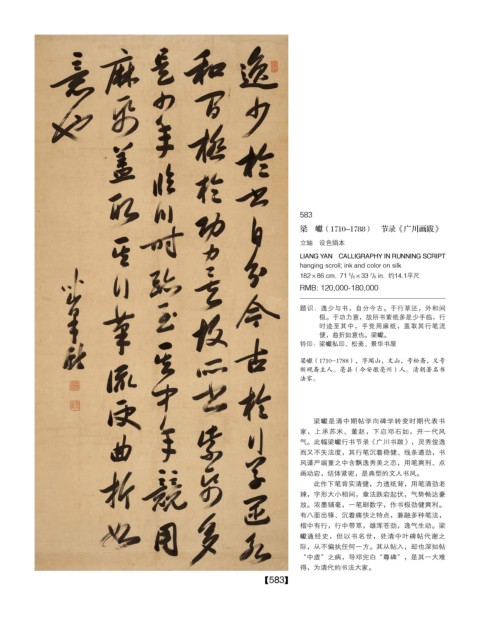 逸少於书自分今古於行草
和百極於功力意故所书紫紙多
是少年臨川时跡至其中年競用
麻紙蓋取其行筆流便曲折如
意也
583
梁　巘（1710-1788）　节录《广川画跋》
立轴　设色绢本
LIANG YAN　CALLIGRAPHY IN RUNNING SCRIPT
hanging scroll; ink and color on silk
182×86 cm. 71 5/8×33 7/8 in. 约14.1平尺
RMB: 120,000-180,000
题识：逸少与书，自分今古。于行草还，外和间
极。于功力意，故所书紫纸多是少手临，行
时迹至其中，乎竞用麻纸，盖取其行笔流
便，曲折如意也。梁巘。
钤印：梁巘私印、松斋、景华书屋
梁巘（1710-1788），字闻山，文山，号松斋，又号
断砚斋主人。亳县（今安徽亳州）人。清朝著名书
法家。
梁巘是清中期帖学向碑学转变时期代表书
家，上承苏米、董赵，下启邓石如，开一代风
气。此幅梁巘行书节录《广川书跋》，灵秀俊逸
而又不失法度，其行笔沉着稳健、线条遒劲，书
风谨严端重之中含飘逸秀美之态，用笔爽利、点
画动宕，结体紧密，是典型的文人书风。
此作下笔肯实清健，力透纸背，用笔清劲老
辣，字形大小相间，章法跌宕起伏，气势畅达豪
放。浓墨铺毫，一笔刷数字，作书极劲健爽利。
有八面出锋、沉着痛快之特点，兼融多种笔法，
楷中有行，行中带草，雄浑苍劲，逸气生动。梁
巘通经史，但以书名世，处清中叶碑帖代谢之
际，从不偏执任何一方。其从帖入，却也深知帖
“中虚”之病，导邓完白“尊碑”，是其一大难
得，为清代的书法大家。
【583】